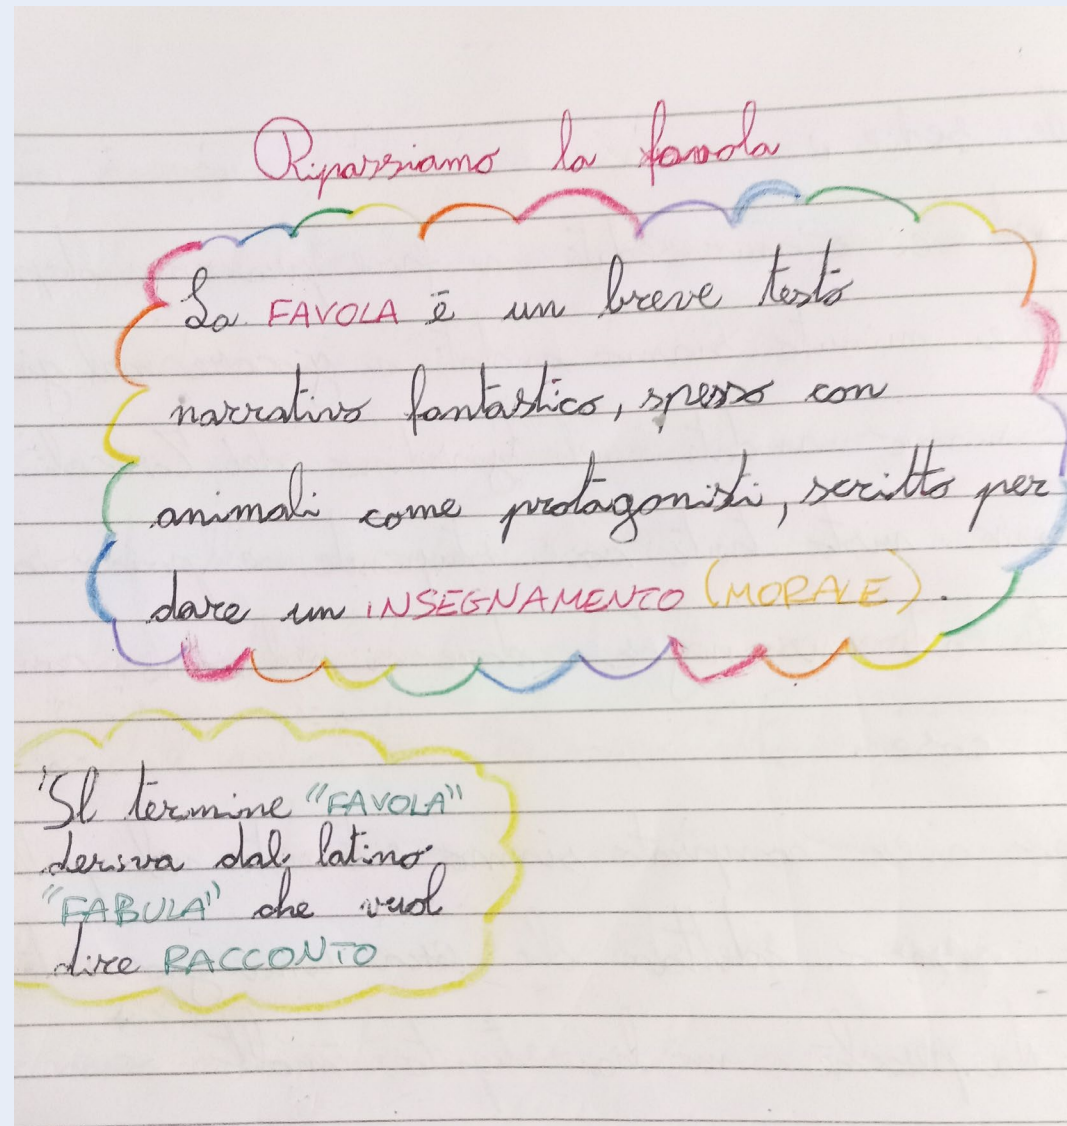 Ripassiamo la favola
La FAVOLA è un breve testo
narrativo fantastico, spesso con
animali come protagonisti, scritto per
dare un INSEGNAMENTO (MORALE).
Il termine "FAVOLA"
deriva dal latino
"FABULA" che vuol
dire RACCONTO